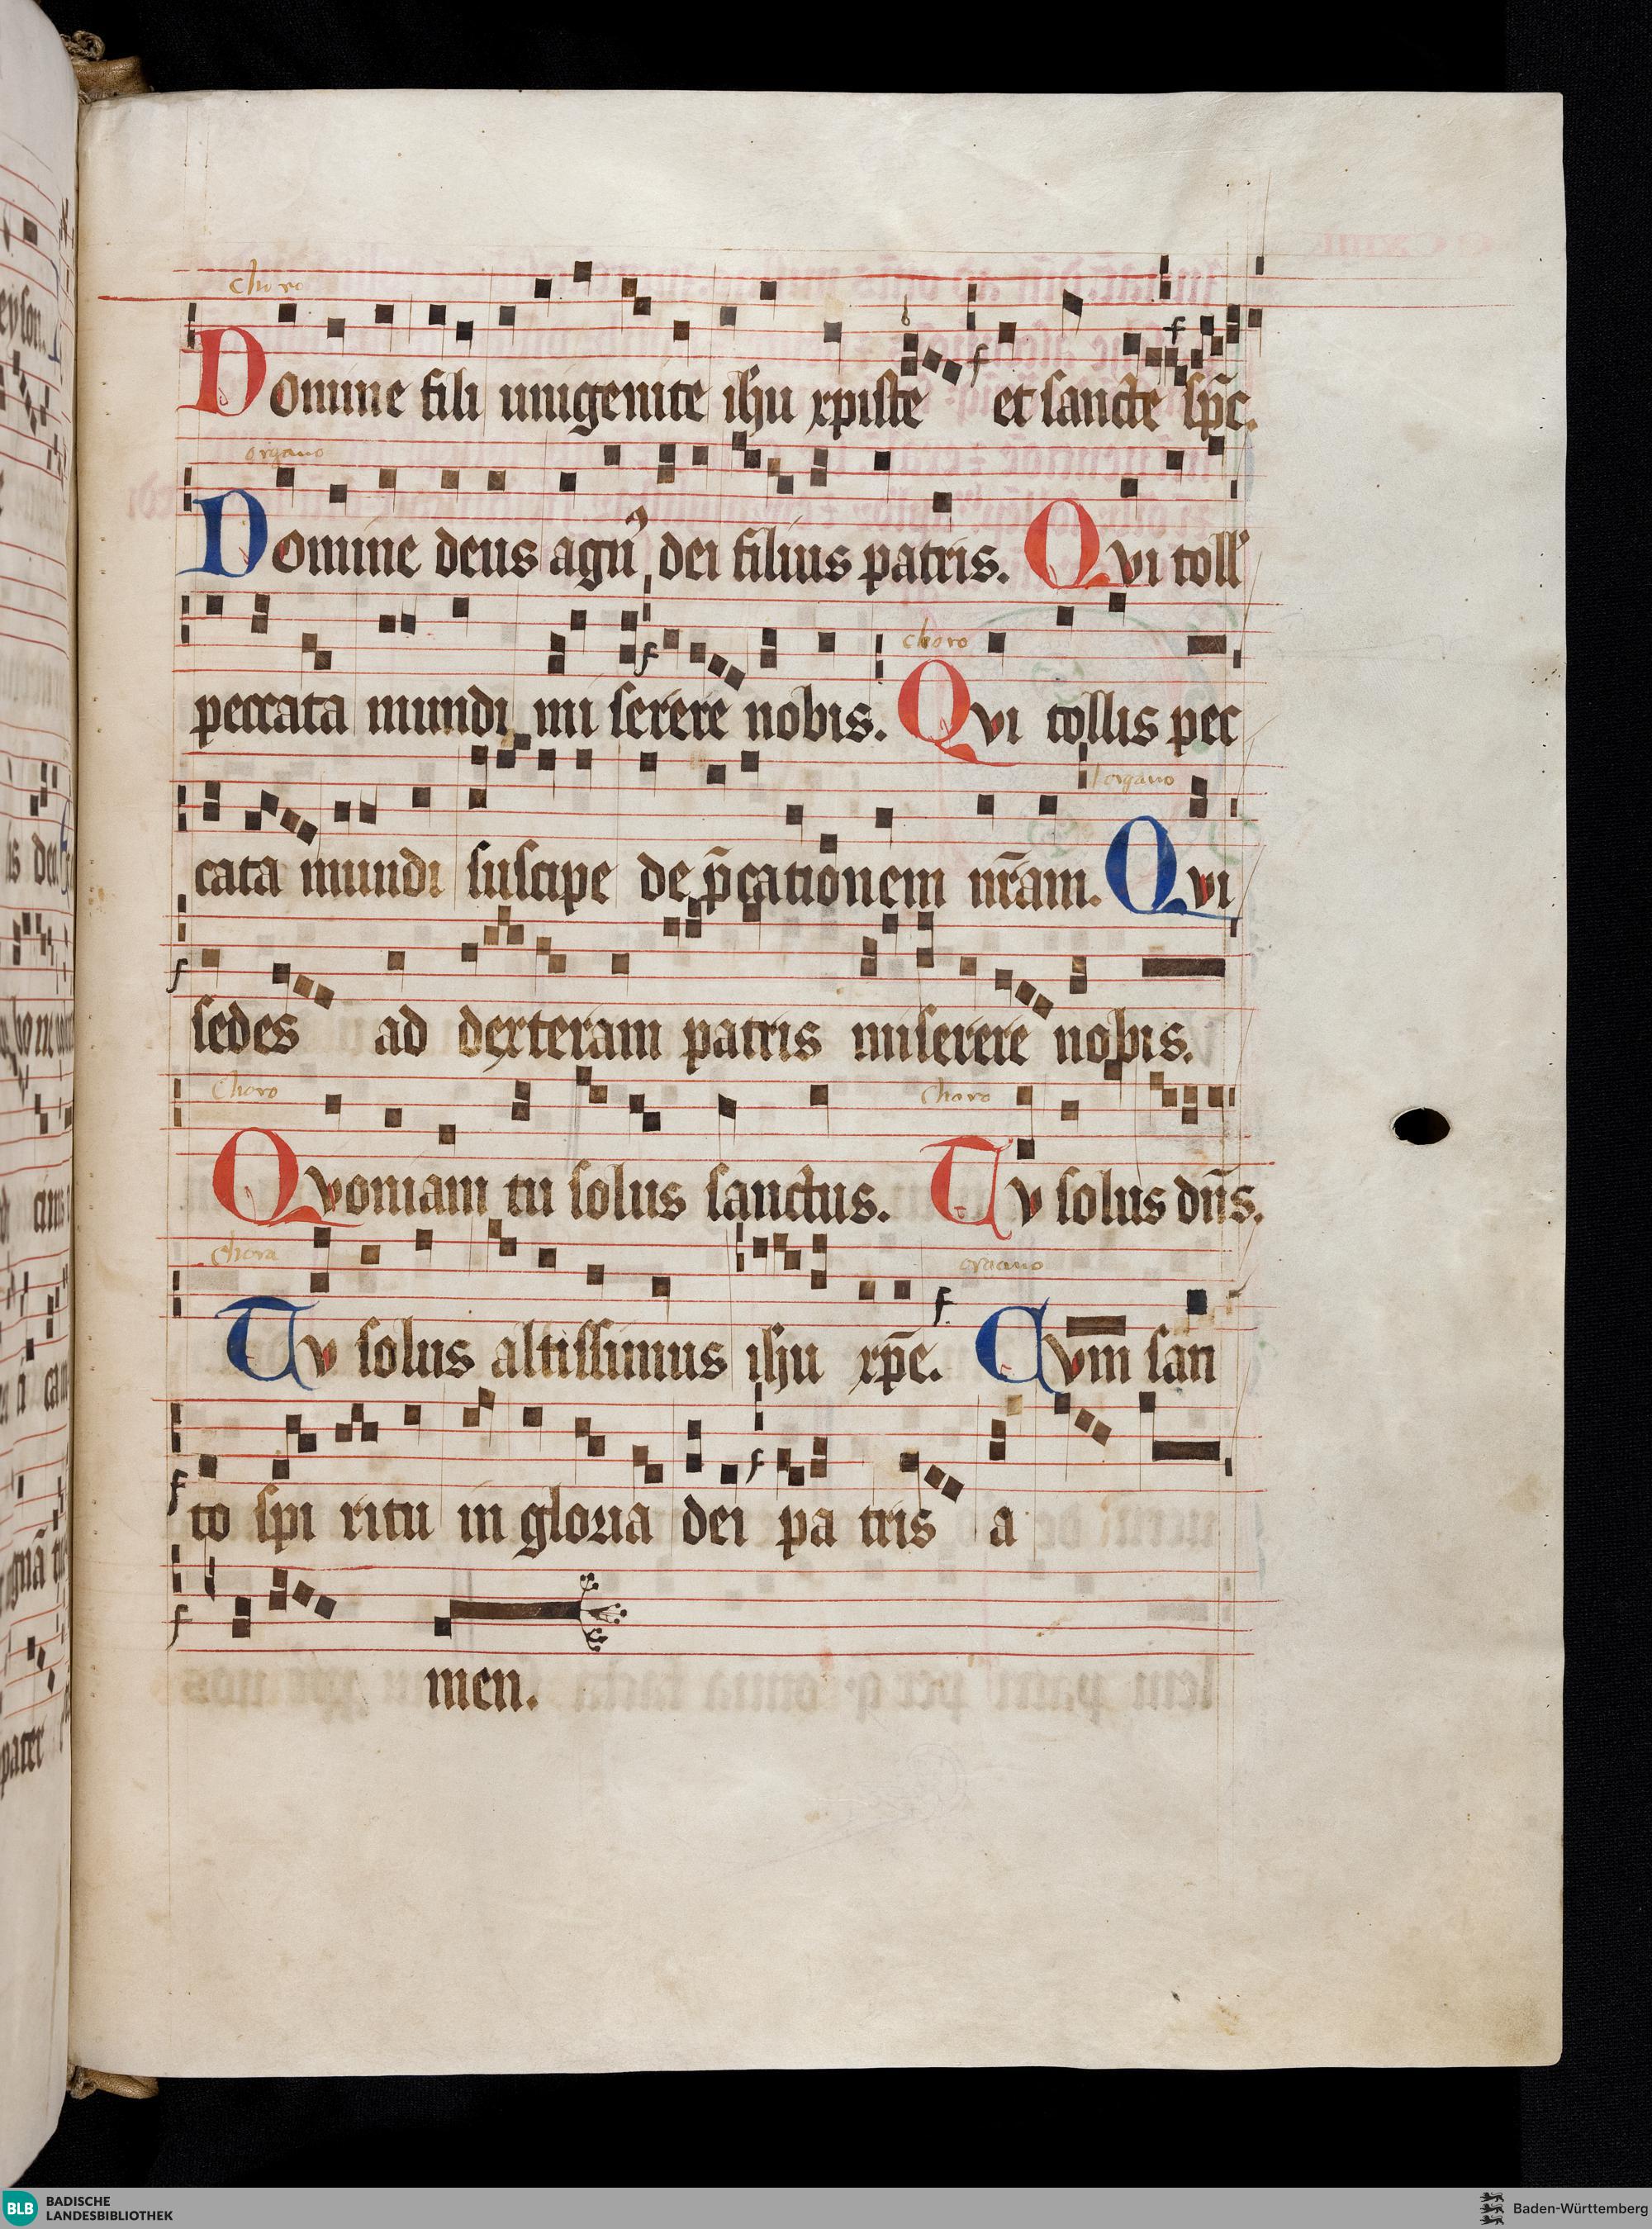 choro
Domine fili unigenite ihu xpiste et sancte sp̄c.
organo
Domine deus agn᷒ dei filius patris. Qvi toll'
choro
peccata mundi mi serere nobis. Qvi tollis pec
organo
cata mundi suscipe de p̄cationem nr̄am. Qvi
sedes ad dexteram patris miserere nobis.
choro choro
Qvoniam tu solus sanctus. Tv solus dn̄s.
choro organo
Tv solus altissimus ihu xp̄e. Cvm san
to spi ritu in gloria dei pa tris a
men.
BLB BADISCHE
LANDESBIBLIOTHEK
Baden-Württemberg